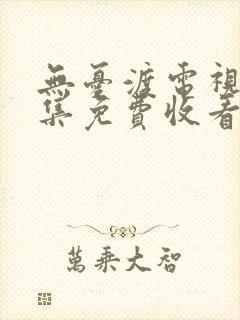 無憂渡電視
集免費收看
萬乘大智